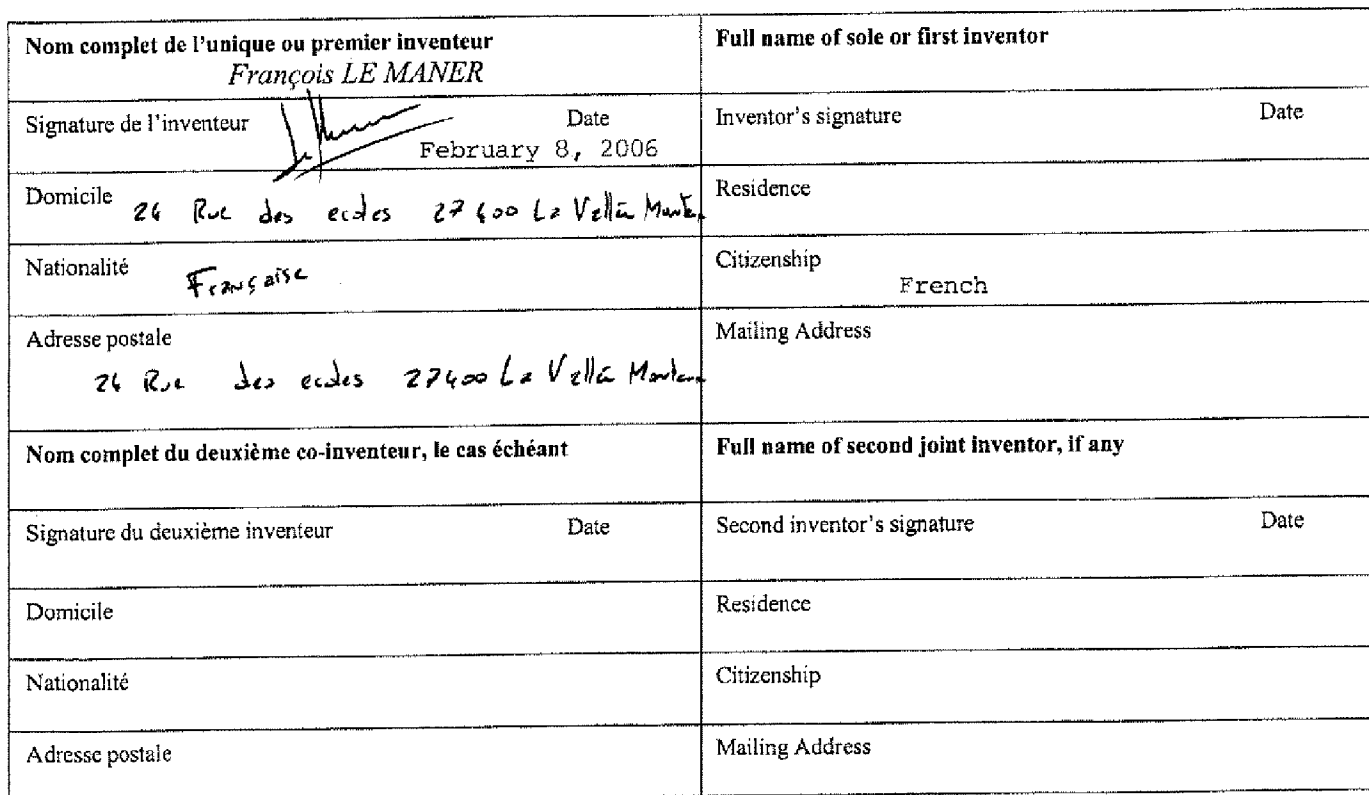 Nom complet de l'unique ou premier inventeur
François LE MANER
Full name of sole or first inventor
Signature de l'inventeur Date
February 8, 2006
Inventor's signature Date
Domicile Rue des ecoles La
Residence
Nationalité Française
Citizenship
French
Adresse postale
Rue des ecoles 27400 La
Mailing Address
Nom complet du deuxième co-inventeur, le cas échéant
Full name of second joint inventor, if any
Signature du deuxième inventeur Date
Second inventor's signature Date
Domicile
Residence
Nationalité
Citizenship
Adresse postale
Mailing Address